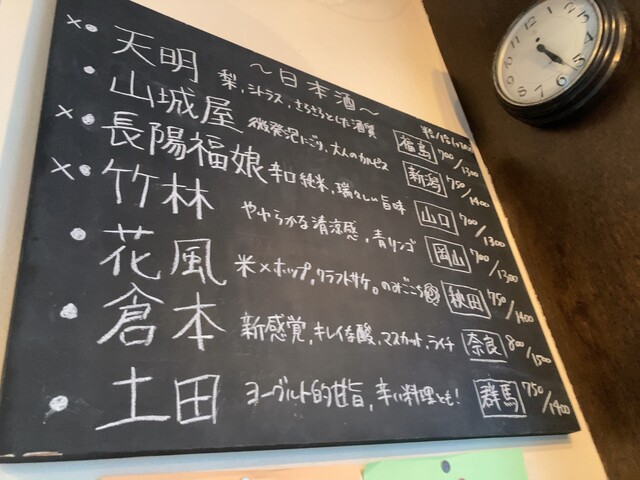 〜日本酒〜
半合/1合(つめたい)
×・天明 梨、シトラス、きらきらとした酒質 福島 700/1300
・山城屋 微発泡にごり、大人のカルピス 新潟 750/1400
×・長陽福娘 辛口純米、瑞々しい旨味 山口 700/1300
×・竹林 やわらかな清涼感、青リンゴ 岡山 700/1300
・花風 米×ホップ、クラフトサケ。のみごこち 秋田 750/1400
・倉本 新感覚、キレイな酸、マスカット、ライチ 奈良 800/1500
・土田 ヨーグルト的甘旨、辛い料理とも! 群馬 750/1400
12
1
2
3
4
5
6
7
8
9
10
11